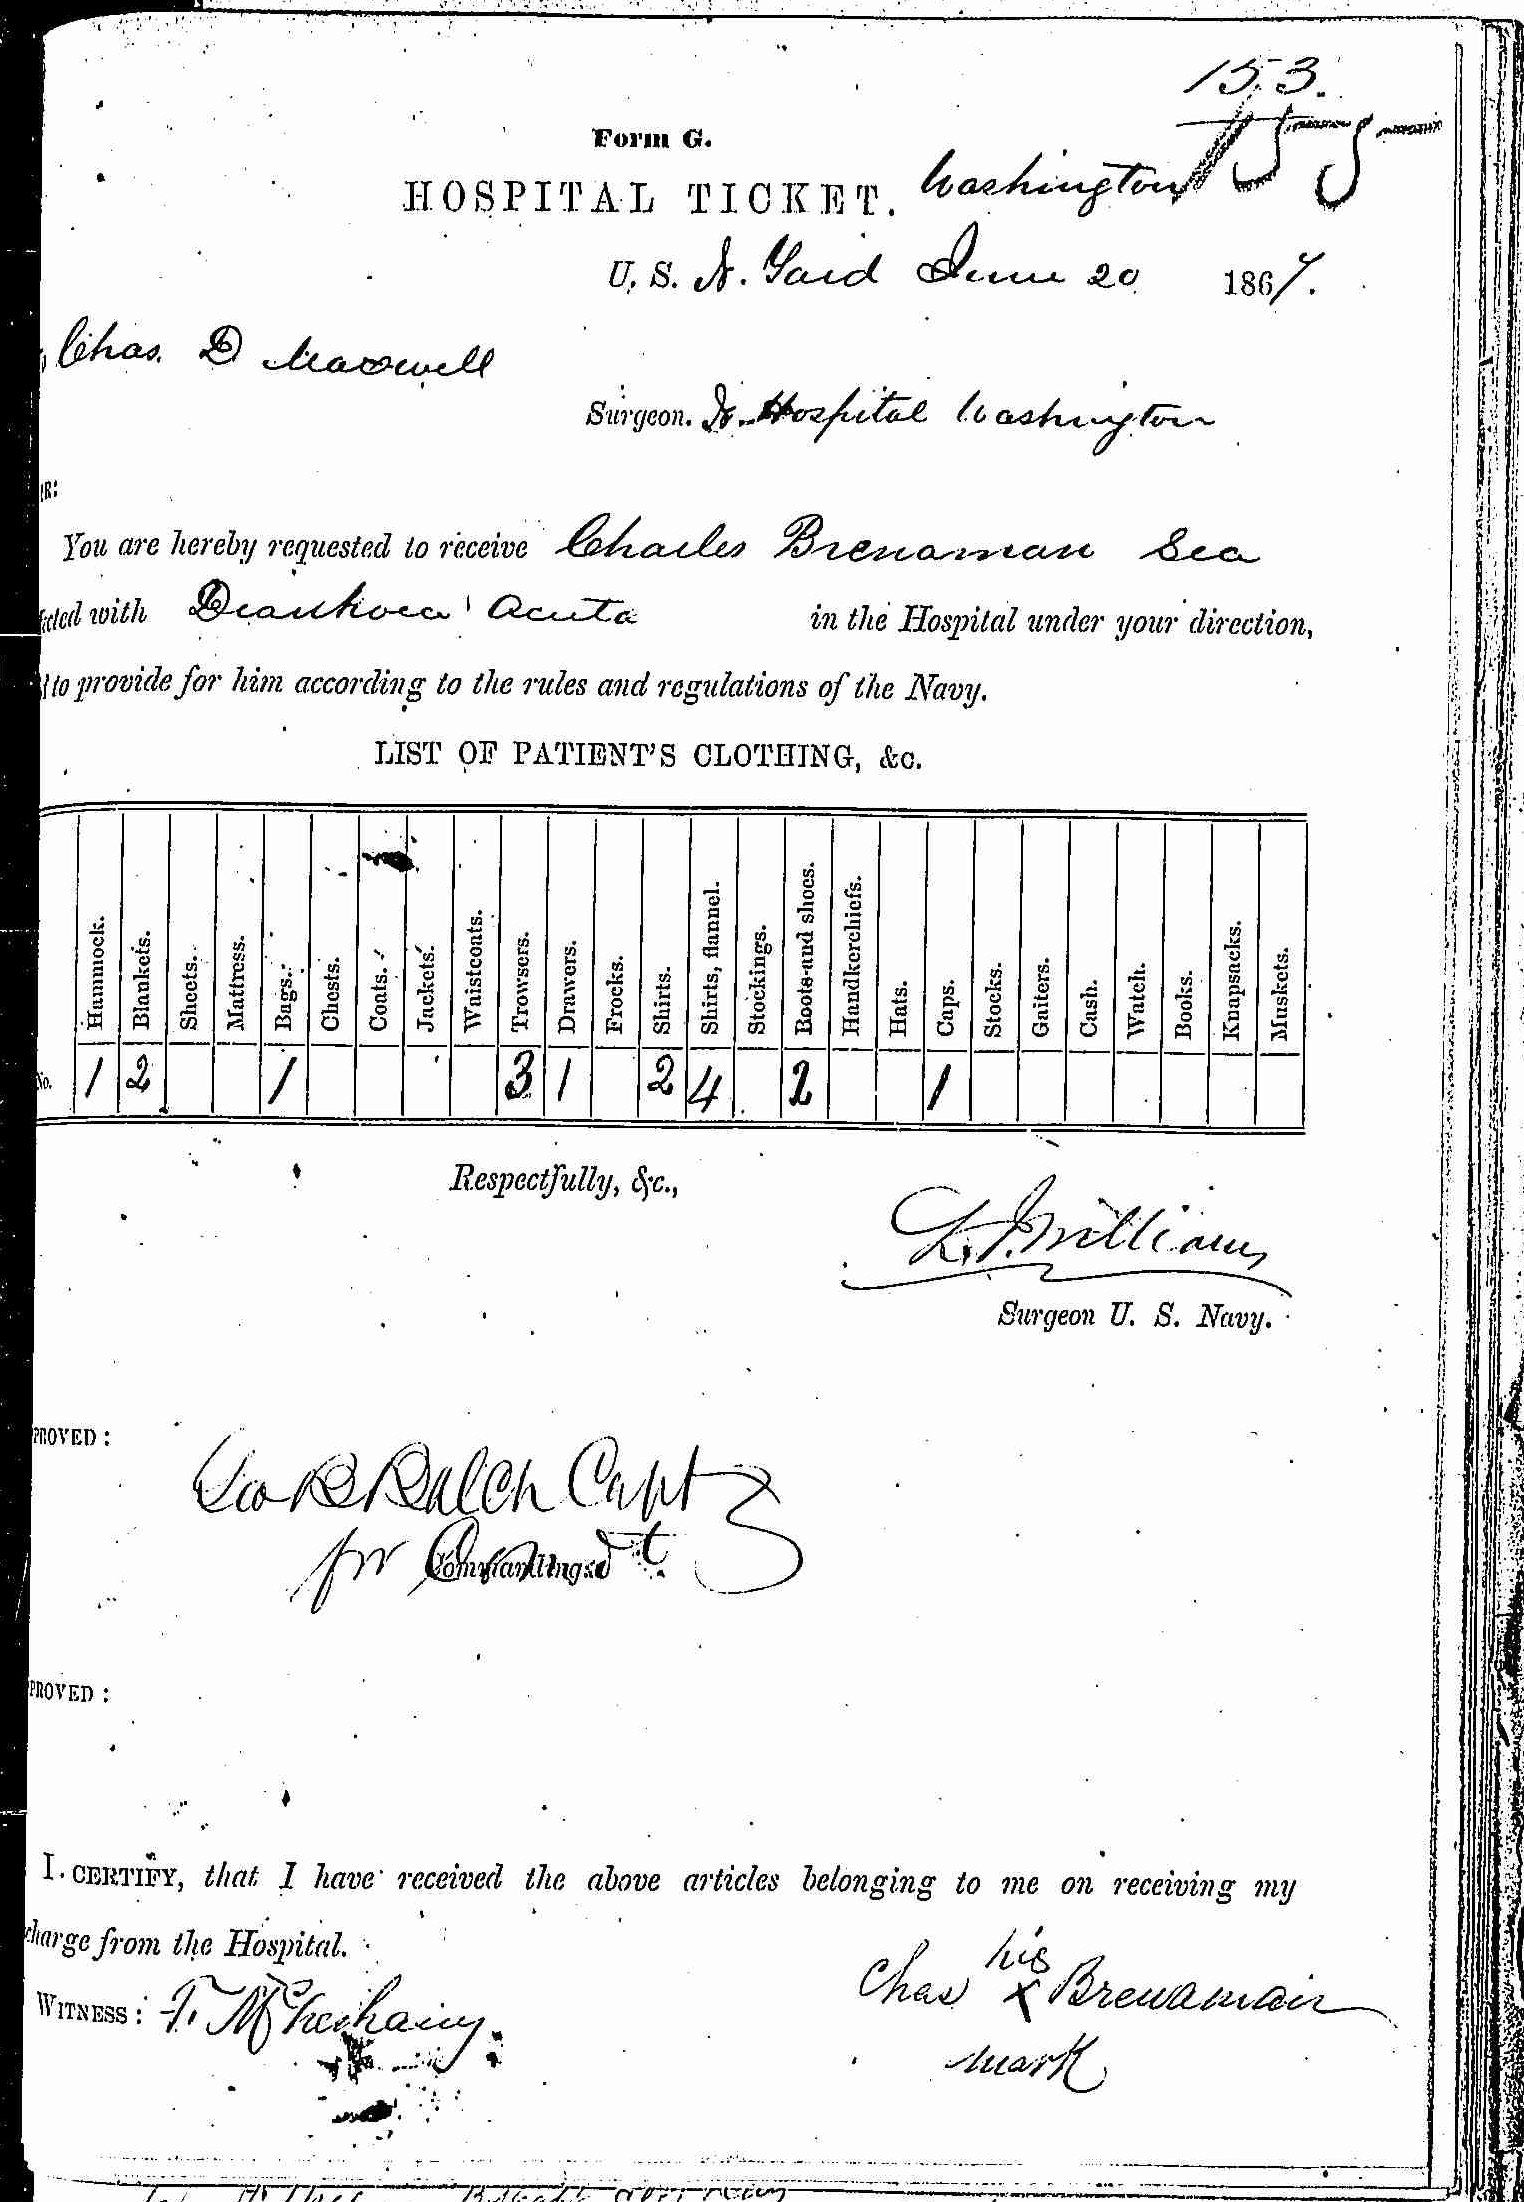 153.
Form G.
HOSPITAL TICKET. Washington
U. S. N. Yard June 20 1867.
Chas. D Maxwell
Surgeon. N. Hospital Washington
You are hereby requested to receive Charles Brenaman Sea
with Diarrhoea Acuta in the Hospital under your direction,
to provide for him according to the rules and regulations of the Navy.
LIST OF PATIENT'S CLOTHING, &c.
Hammock. Blankets. Sheets. Mattress. Bags. Chests. Coats. Jackets. Waistcoats. Trowsers. Drawers. Frocks. Shirts. Shirts, flannel. Stockings. Boots and shoes. Handkerchiefs. Hats. Caps. Stocks. Gaiters. Cash. Watch. Books. Knapsacks. Muskets.
No. 1 2 1 3 1 2 4 2 1
Respectfully, &c.,
Williams
Surgeon U. S. Navy.
PROVED:
Geo B Balch Capt
for Comdt.
PROVED:
I CERTIFY, that I have received the above articles belonging to me on receiving my
charge from the Hospital.
his
WITNESS: Chas x Brenaman
mark